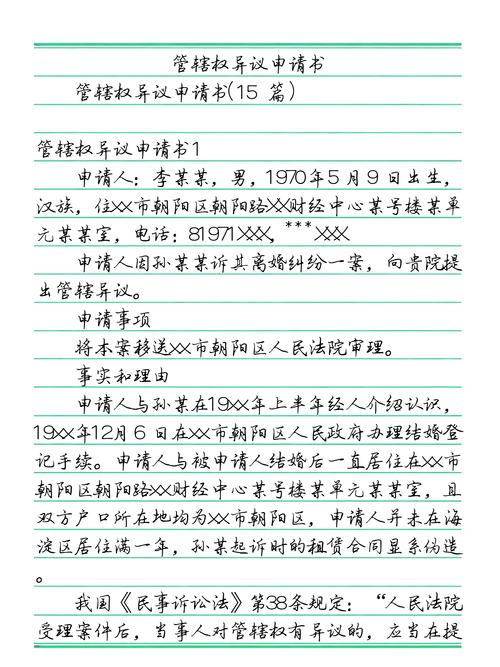 管辖权异议申请书
管辖权异议申请书(15 篇)
管辖权异议申请书1
申请人：李某某，男，1970年5月9日出生，
汉族，住XX市朝阳区朝阳路XX财经中心某号楼某单
元某某室，电话：81971XXX，***XXX
申请人因孙某某诉其离婚纠纷一案，向贵院提
出管辖异议。
申请事项
将本案移送XX市朝阳区人民法院审理。
事实和理由
申请人与孙某在19XX年上半年经人介绍认识，
19XX年12月6日在XX市朝阳区人民政府办理结婚登
记手续。申请人与被申请人结婚后一直居住在XX市
朝阳区朝阳路XX财经中心某号楼某单元某某室，且
双方户口所在地均为XX市朝阳区，申请人并未在海
淀区居住满一年，孙某起诉时的租赁合同显系伪造
。
我国《民事诉讼法》第38条规定：“人民法院
受理案件后，当事人对管辖权有异议的，应当在提